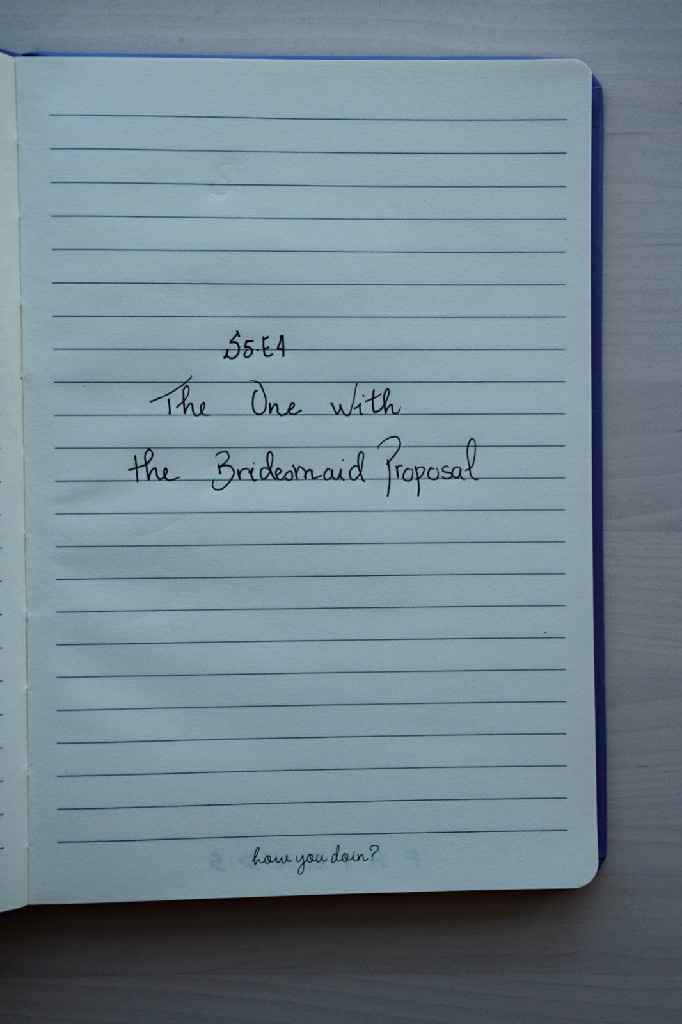 S5-E4
The One with
the Bridesmaid Proposal
how you doin?